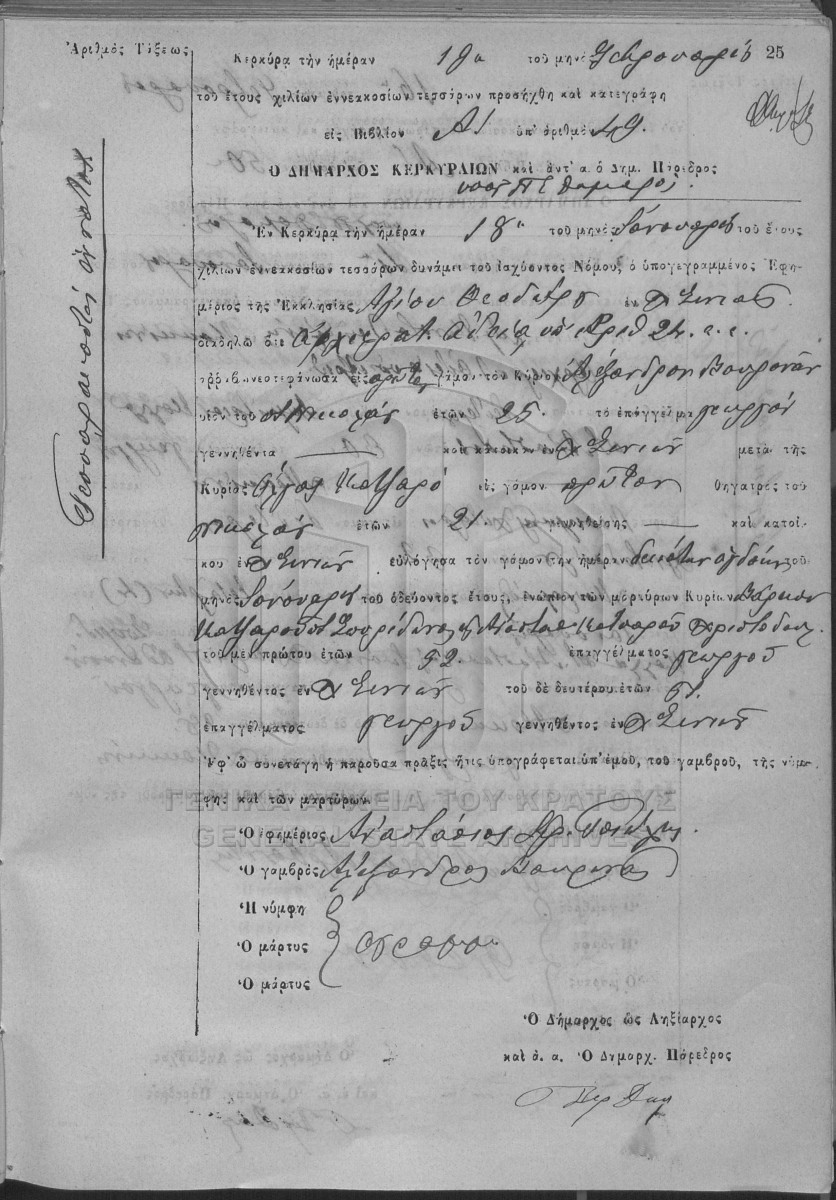 Ἀριθμὸς Τάξεως
25
Κερκύρα τὴν ἡμέραν 19ῃ τοῦ μηνὸς Φεβρουαρίου
τοῦ ἔτους χιλίων ἐννεακοσίων τεσσάρων προσήχθη καὶ κατεγράφη
εἰς Βιβλίον Α/ ὑπ' ἀριθμὸν 49.
Ὁ ΔΗΜΑΡΧΟΣ ΚΕΡΚΥΡΑΙΩΝ καὶ ἀντ' α. ὁ Δημ. Πάρεδρος
Τεσσαρακοστὸς
Ἐν Κερκύρα τὴν ἡμέραν 18ῃ τοῦ μηνὸς Ἰανουαρίου τοῦ ἔτους
χιλίων ἐννεακοσίων τεσσάρων δυνάμει τοῦ ἰσχύοντος Νόμου, ὁ ὑπογεγραμμένος Ἐφη-
μέριος τῆς Ἐκκλησίας Ἁγίου Θεοδώρου ἐν Σινιαῖς
διαδηλῶ ὅτι Ἀρχιερατ. ἀδείᾳ ὑπ' ἀριθ 24. ἐ. ἔ.
ἀρραβωνοστεφάνωσα εἰς πρῶτον γάμον τὸν Κύριον Ἀλέξανδρον Κουρινᾶν
υἱὸν τοῦ Νικολάου ἐτῶν 25. τὸ ἐπάγγελμα γεωργόν
γεννηθέντα — καὶ κάτοικον ἐν Σινιῶν μετὰ τῆς
Κυρίας Ὄλγας Κατσαρὸ εἰς γάμον πρῶτον θηγατρὸς τοῦ
Νικολάου ἐτῶν 21 γεννηθείσης — καὶ κατοί-
κου ἐν Σινιῶν εὐλόγησα τὸν γάμον τὴν ἡμέραν δεκάτην ὀγδόην τοῦ
μηνὸς Ἰανουαρίου τοῦ ὁδεύοντος ἔτους, ἐνώπιον τῶν μαρτύρων Κυρίων Μάρκου
Κατσαροῦ Σπυρίδωνος καὶ Ἀναστασ. Κατσαροῦ Χριστοδούλ.
τοῦ μὲν πρώτου ἐτῶν 52. ἐπαγγέλματος γεωργοῦ
γεννηθέντος ἐν Σινιῶν τοῦ δὲ δευτέρου ἐτῶν 51.
ἐπαγγέλματος γεωργοῦ γεννηθέντος ἐν Σινιῶν
Ἐφ' ᾧ συνετάγη ἡ παροῦσα πρᾶξις ἥτις ὑπογράφεται ὑπ' ἐμοῦ, τοῦ γαμβροῦ, τῆς νύμ-
φης καὶ τῶν μαρτύρων
ΓΕΝΙΚΑ ΑΡΧΕΙΑ ΤΟΥ ΚΡΑΤΟΥΣ
GENERAL STATE ARCHIVES
Ὁ ἐφημέριος Ἀναστάσιος
Ὁ γαμβρὸς Ἀλέξανδρος Κουρινας
Ἡ νύμφη
Ὁ μάρτυς
Ὁ μάρτυς
Ὁ Δήμαρχος ὡς Ληξίαρχος
καὶ ἀ. α. Ὁ Δημαρχ. Πάρεδρος